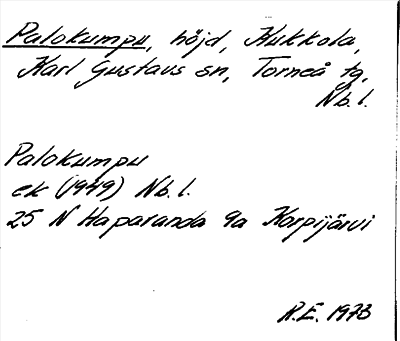 Palokumpu, höjd, Kukkola,
Karl Gustavs sn, Torneå tg,
Nb. l.
Palokumpu
ek (1949) Nb. l.
25 N Haparanda 9a Korpijärvi
R.E. 1973